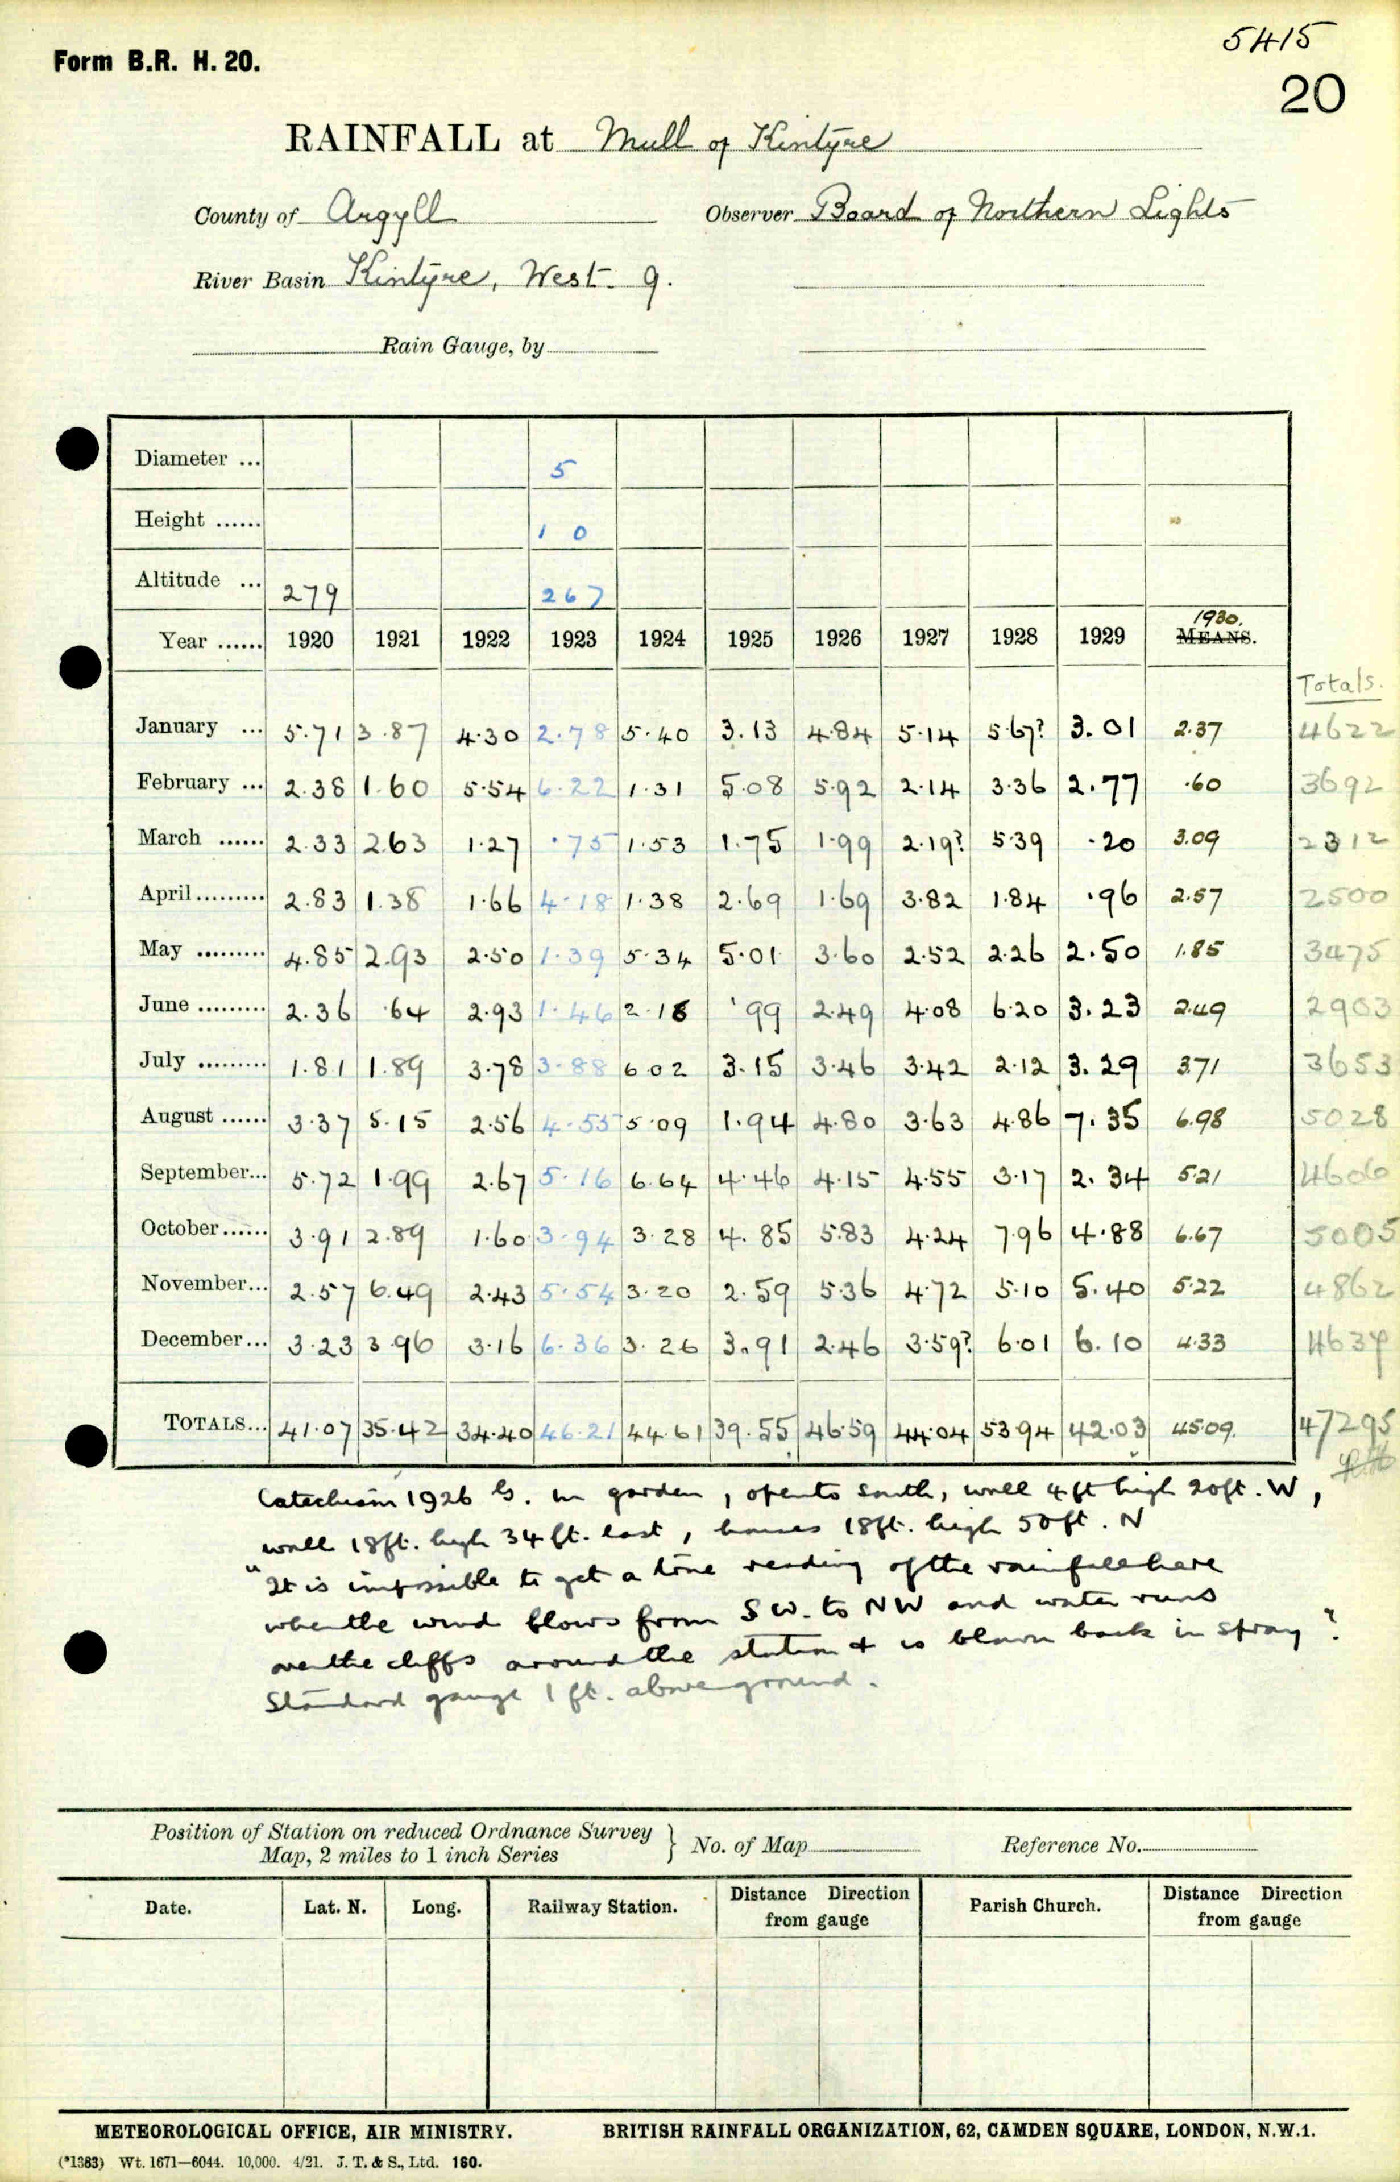 5415
Form B.R. H. 20.
20
RAINFALL at Mull of Kintyre
County of Argyll Observer Board of Northern Lights
River Basin Kintyre, West. 9.
Rain Gauge, by
Diameter ... 5
Height ...... 1 0
Altitude ... 279 267
1930.
Year ...... 1920 1921 1922 1923 1924 1925 1926 1927 1928 1929 MEANS.
Totals.
January ... 5.71 3.87 4.30 2.78 5.40 3.13 4.84 5.14 5.67? 3.01 2.37 4622
February ... 2.38 1.60 5.54 6.22 1.31 5.08 5.92 2.14 3.36 2.77 .60 3692
March ...... 2.33 2.63 1.27 .75 1.53 1.75 1.99 2.19? 5.39 .20 3.09 2312
April ......... 2.83 1.38 1.66 4.18 1.38 2.69 1.69 3.82 1.84 .96 2.57 2500
May ......... 4.85 2.93 2.50 1.39 5.34 5.01 3.60 2.52 2.26 2.50 1.85 3475
June ......... 2.36 .64 2.93 1.46 2.18 .99 2.49 4.08 6.20 3.23 2.49 2903
July ......... 1.81 1.89 3.78 3.88 6.02 3.15 3.46 3.42 2.12 3.29 3.71 3653
August ...... 3.37 5.15 2.56 4.55 5.09 1.94 4.80 3.63 4.86 7.35 6.98 5028
September... 5.72 1.99 2.67 5.16 6.64 4.46 4.15 4.55 3.17 2.34 5.21 4606
October...... 3.91 2.89 1.60 3.94 3.28 4.85 5.83 4.24 7.96 4.88 6.67 5005
November... 2.57 6.49 2.43 5.54 3.20 2.59 5.36 4.72 5.10 5.40 5.22 4862
December... 3.23 3.96 3.16 6.36 3.26 3.91 2.46 3.59? 6.01 6.10 4.33 4637
TOTALS... 41.07 35.42 34.40 46.21 44.61 39.55 46.59 44.04 53.94 42.03 45.09. 47295
Catechism 1926 G. in garden, open to south, wall 4ft high 20ft. W,
wall 18ft. high 34 ft. east, houses 18ft. high 50ft. N
"It is impossible to get a true reading of the rainfall here
when the wind blows from SW. to NW and water runs
over the cliffs around the station & is blown back in spray"
Standard gauge 1 ft. above ground.
Position of Station on reduced Ordnance Survey
Map, 2 miles to 1 inch Series } No. of Map Reference No.
Date. Lat. N. Long. Railway Station. Distance Direction from gauge Parish Church. Distance Direction from gauge
METEOROLOGICAL OFFICE, AIR MINISTRY. BRITISH RAINFALL ORGANIZATION, 62, CAMDEN SQUARE, LONDON, N.W.1.
(*1383) Wt. 1671—6044. 10,000. 4/21. J. T. & S., Ltd. 160.